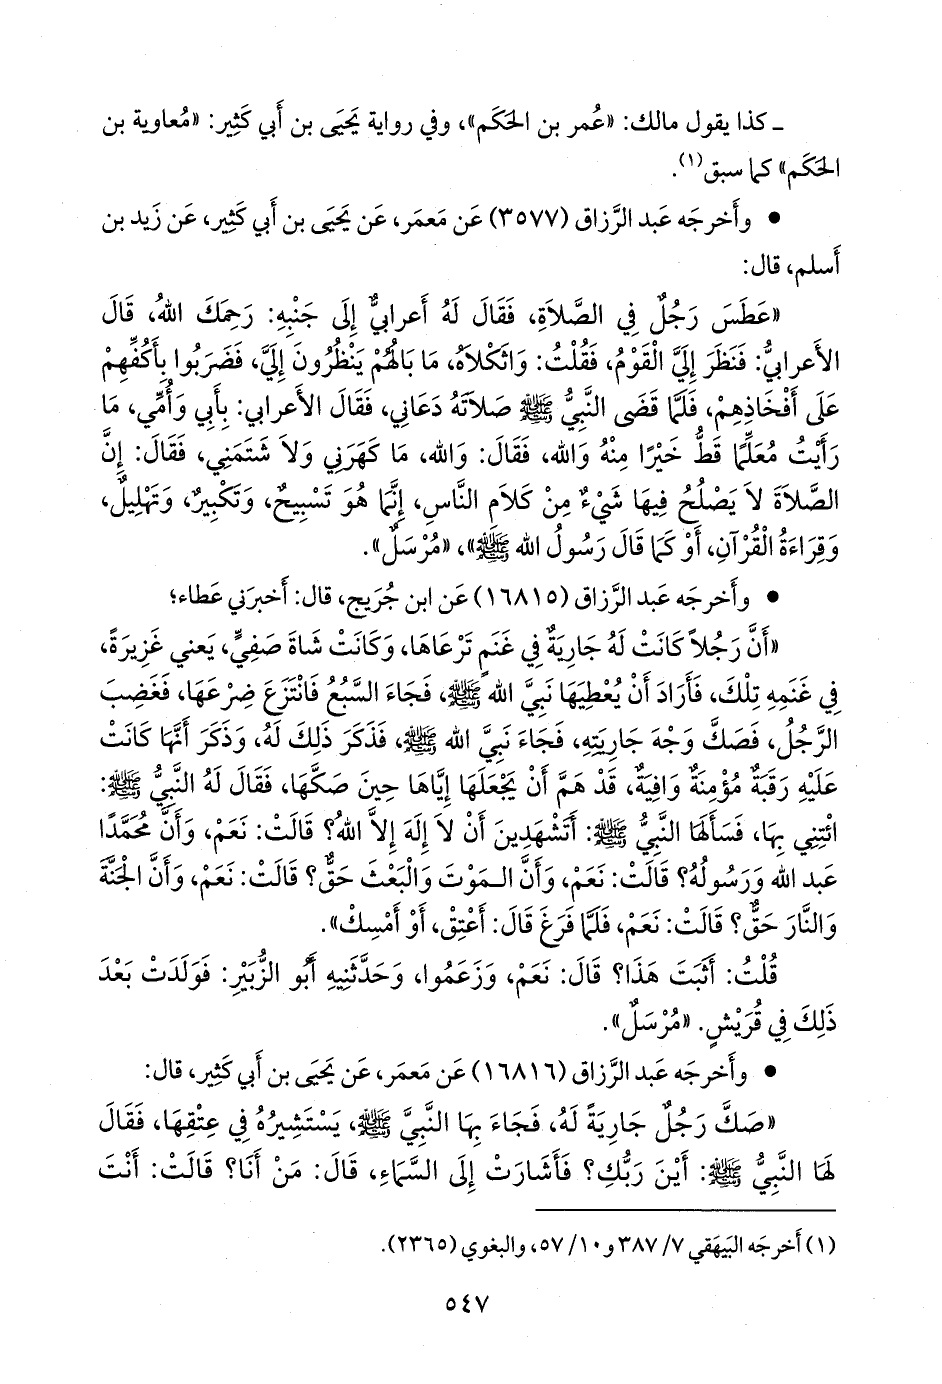 ـ كذا يقول مالك: «عُمر بن الحَكَم»، وفي رواية يَحيَى بن أَبي كَثِير: «مُعاوية بن
الحَكَم» كما سبق(١).
• وأَخرجَه عَبد الرَّزاق (٣٥٧٧) عَن مَعمَر، عَن يَحيَى بن أَبي كَثِير، عَن زَيد بن
أَسلم، قال:
«عَطَسَ رَجُلٌ فِي الصَّلاَةِ، فَقَالَ لَهُ أَعرابيٌّ إِلَى جَنْبِهِ: رَحِمَكَ اللهُ، قَالَ
الأَعرابيُّ: فَنَظَرَ إِلَيَّ الْقَوْمُ، فَقُلْتُ: وَاثَكْلاَهُ، مَا بَالُهُمْ يَنْظُرُونَ إِلَيَّ، فَضَرَبُوا بِأَكُفِّهِمْ
عَلَى أَفْخَاذِهِمْ، فَلَمَّا قَضَى النَّبِيُّ ﷺ صَلاَتَهُ دَعَانِي، فَقَالَ الأَعرابي: بِأَبِي وَأُمِّي، مَا
رَأَيْتُ مُعَلِّمًا قَطُّ خَيْرًا مِنْهُ وَالله، فَقَالَ: وَالله، مَا كَهَرَنِي وَلاَ شَتَمَنِي، فَقَالَ: إِنَّ
الصَّلاَةَ لاَ يَصْلُحُ فِيهَا شَيْءٌ مِنْ كَلاَمِ النَّاسِ، إِنَّمَا هُوَ تَسْبِيحٌ، وَتَكْبِيرٌ، وَتَهْلِيلٌ،
وَقِرَاءَةُ الْقُرْآنِ، أَوْ كَمَا قَالَ رَسُولُ الله ﷺ»، «مُرْسَلٌ».
• وأَخرجَه عَبد الرَّزاق (١٦٨١٥) عَن ابن جُرَيج، قال: أَخبرَني عَطاء؛
«أَنَّ رَجُلاً كَانَتْ لَهُ جَارِيَةٌ فِي غَنَمٍ تَرْعَاهَا، وَكَانَتْ شَاةَ صَفِيٍّ، يَعني غَزِيرَةً،
فِي غَنَمِهِ تِلْكَ، فَأَرَادَ أَنْ يُعْطِيَهَا نَبِيَّ الله ﷺ، فَجَاءَ السَّبُعُ فَانْتَزَعَ ضِرْعَهَا، فَغَضِبَ
الرَّجُلُ، فَصَكَّ وَجْهَ جَارِيَتِهِ، فَجَاءَ نَبِيَّ الله ﷺ، فَذَكَرَ ذَلِكَ لَهُ، وَذَكَرَ أَنَّهَا كَانَتْ
عَلَيْهِ رَقَبَةٌ مُؤْمِنَةٌ وَافِيَةٌ، قَدْ هَمَّ أَنْ يَجْعَلَهَا إِيَّاهَا حِينَ صَكَّهَا، فَقَالَ لَهُ النَّبِيُّ ﷺ:
ائْتِنِي بِهَا، فَسَأَلَهَا النَّبِيُّ ﷺ: أَتَشْهَدِينَ أَنْ لاَ إِلَهَ إِلاَّ اللهُ؟ قَالَتْ: نَعَمْ، وَأَنَّ مُحَمَّدًا
عَبد الله وَرَسُولُهُ؟ قَالَتْ: نَعَمْ، وَأَنَّ الْـمَوْتَ وَالْبَعْثَ حَقٌّ؟ قَالَتْ: نَعَمْ، وَأَنَّ الْجَنَّةَ
وَالنَّارَ حَقٌّ؟ قَالَتْ: نَعَمْ، فَلَمَّا فَرَغَ قَالَ: أَعْتِقْ، أَوْ أَمْسِكْ».
قُلْتُ: أَثَبَتَ هَذَا؟ قَالَ: نَعَمْ، وَزَعَمُوا، وَحَدَّثَنِيهِ أَبُو الزُّبَيْرِ: فَوَلَدَتْ بَعْدَ
ذَلِكَ فِي قُرَيْشٍ. «مُرْسَلٌ».
• وأَخرجَه عَبد الرَّزاق (١٦٨١٦) عَن مَعمَر، عَن يَحيَى بن أَبي كَثِير، قال:
«صَكَّ رَجُلٌ جَارِيَةً لَهُ، فَجَاءَ بِهَا النَّبِيَّ ﷺ، يَسْتَشِيرُهُ فِي عِتْقِهَا، فَقَالَ
لَهَا النَّبِيُّ ﷺ: أَيْنَ رَبُّكِ؟ فَأَشَارَتْ إِلَى السَّمَاءِ، قَالَ: مَنْ أَنَا؟ قَالَتْ: أَنْتَ
(١) أَخرجَه البَيهَقي ٧/ ٣٨٧ و١٠/ ٥٧، والبغوي (٢٣٦٥).
٥٤٧